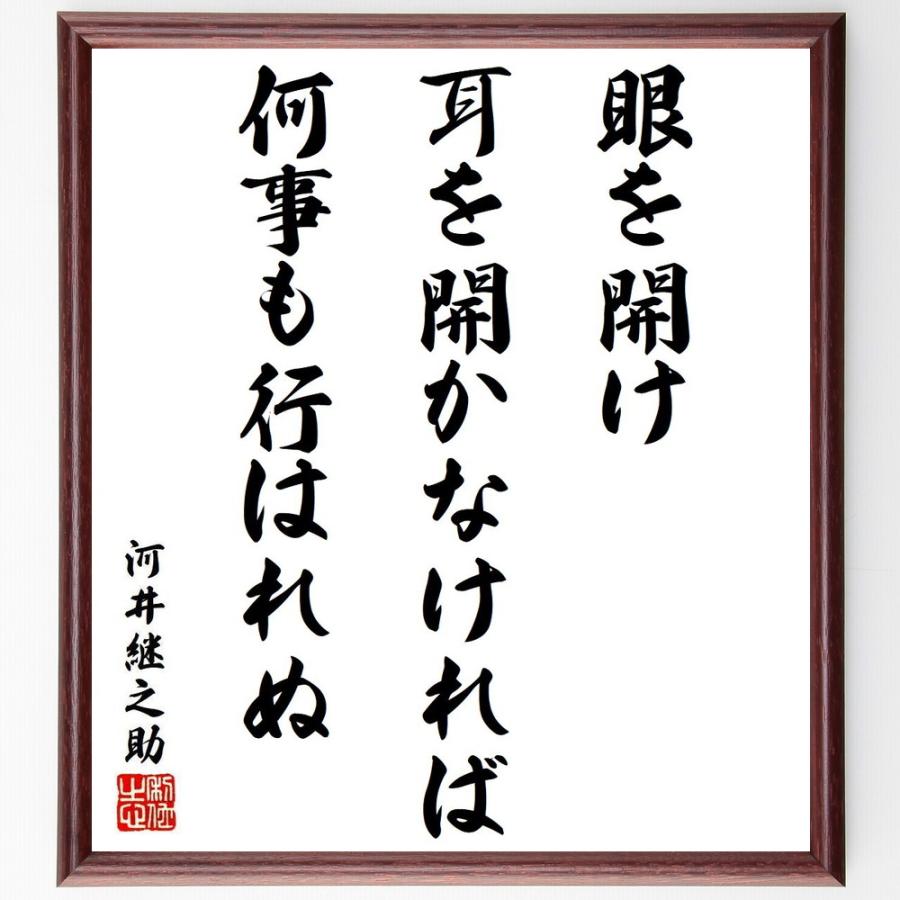 眼を開け
耳を開かなければ
何事も行はれぬ
河井継之助